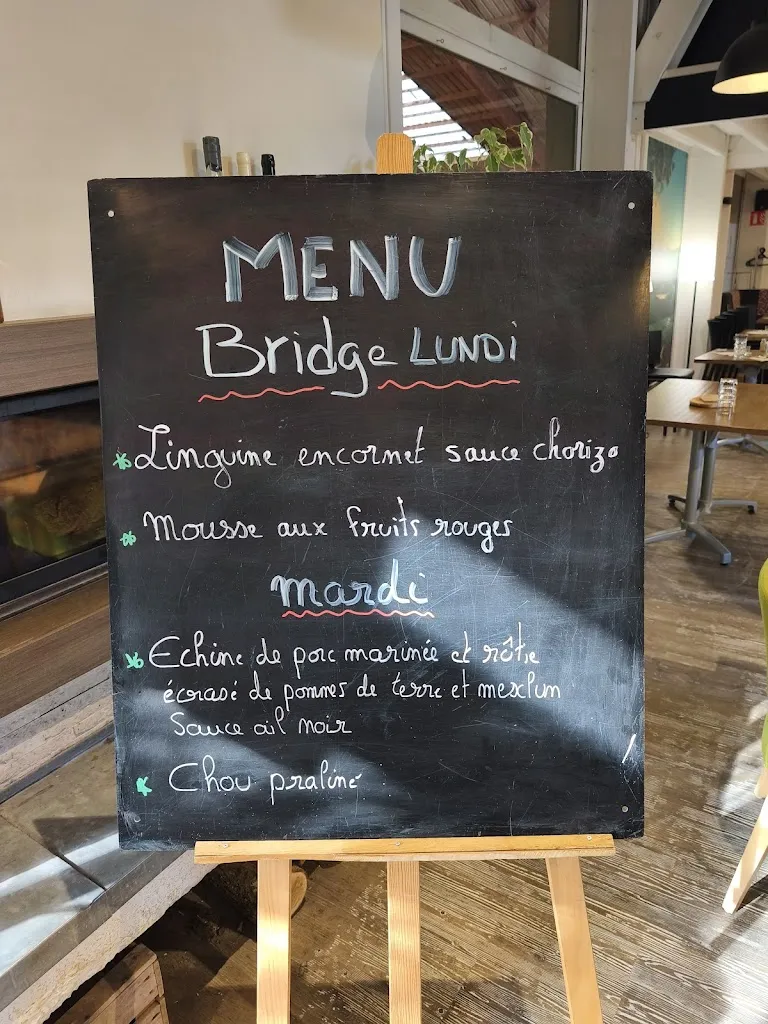 MENU
Bridge LUNDI
Linguine encornet sauce chorizo
Mousse aux fruits rouges
mardi
Echine de porc marinée et rôtie
écrasé de pommes de terre et mesclum
Sauce ail noir
Chou praliné